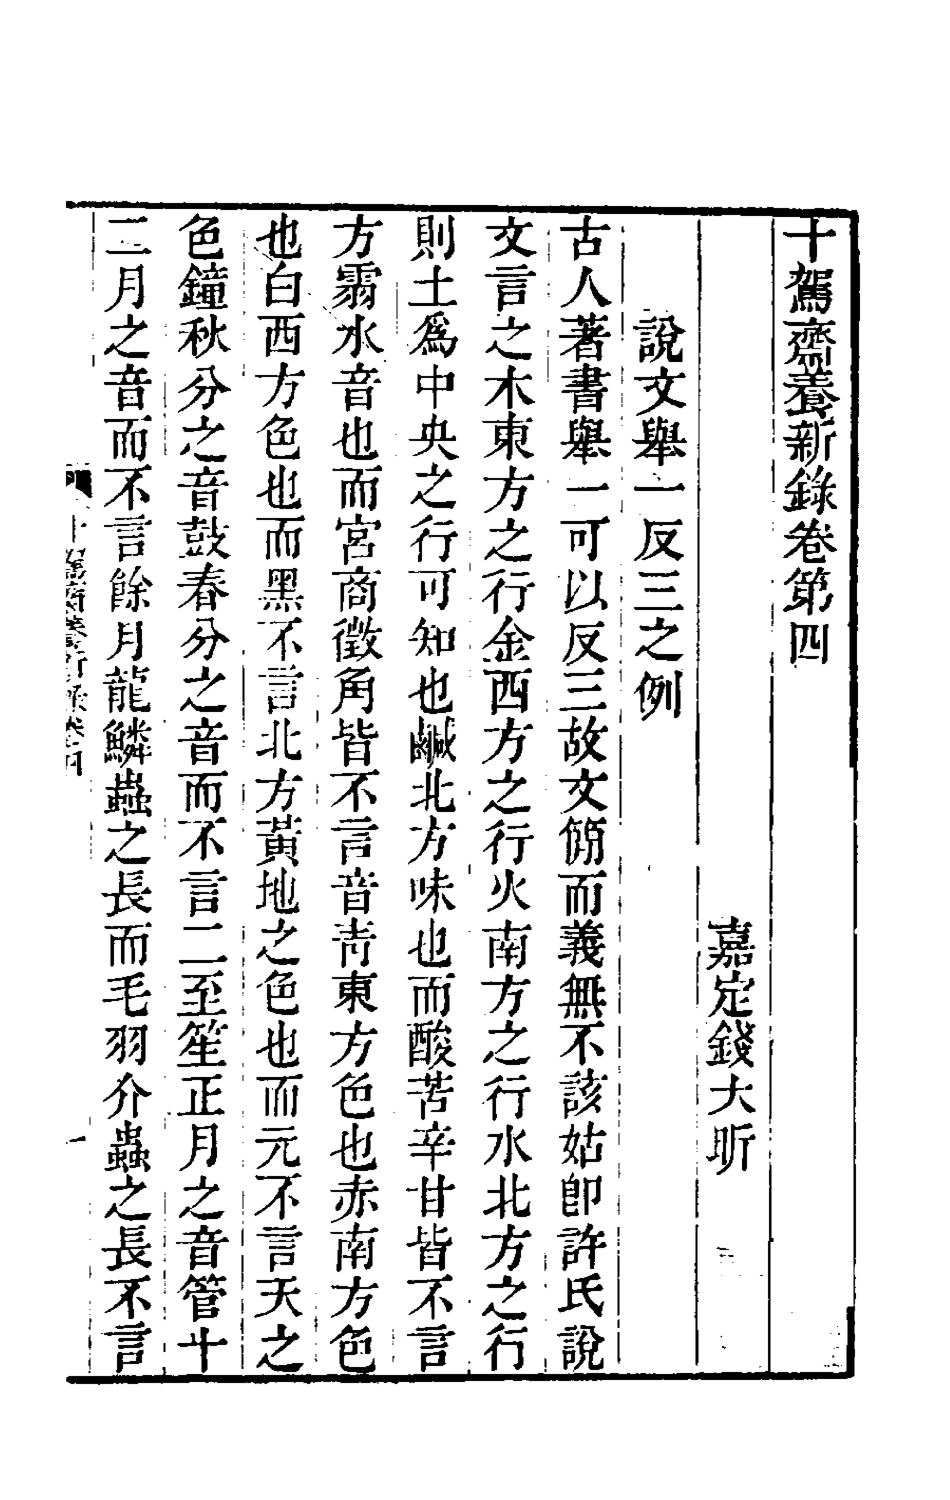 十駕齋養新錄卷第四
嘉定錢大昕
說文舉一反三之例
古人著書舉一可以反三故文𥳑而義無不該姑卽許氏說
文言之木東方之行金西方之行火南方之行水北方之行
則土爲中央之行可知也鹹北方味也而酸苦辛甘皆不言
方霸水音也而宮商徵角皆不言音靑東方色也赤南方色
也白西方色也而黑不言北方黃地之色也而元不言天之
色鐘秋分之音鼓春分之音而不言二至笙正月之音管十
二月之音而不言餘月龍鱗蟲之長而毛羽介蟲之長不言
十駕齋養新錄卷四
一